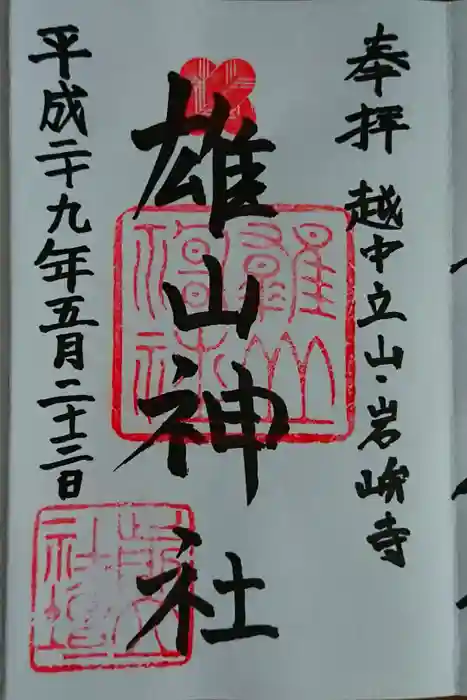 奉拝 越中立山・岩峅寺
雄山神社
平成二十九年五月二十三日